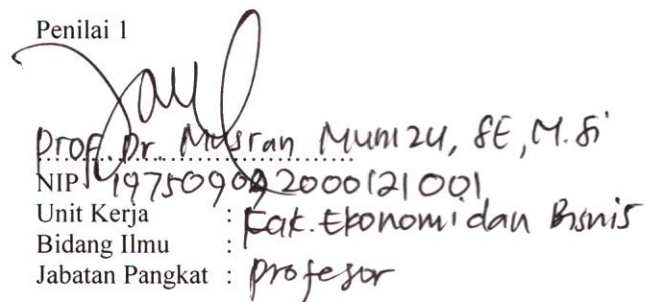 Penilai 1
Prof. Dr. Musran Munizu, SE, M.Si
NIP 197509092000121001
Unit Kerja : Fak. Ekonomi dan Bisnis
Bidang Ilmu :
Jabatan Pangkat : Profesor